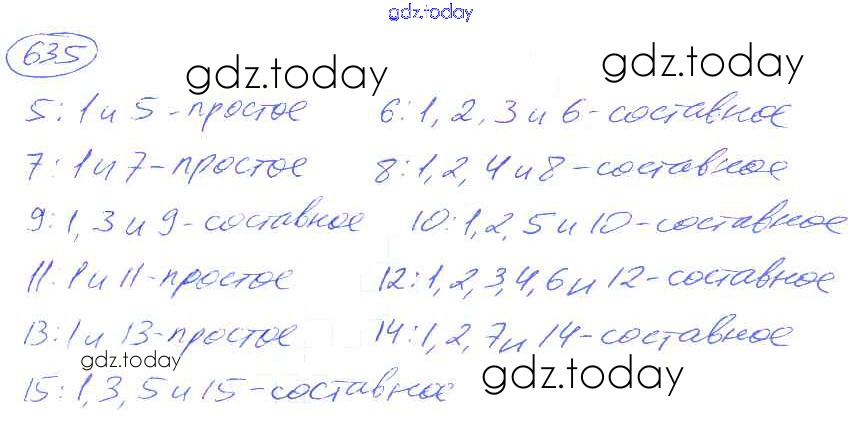 gdz.today
635
gdz.today gdz.today
5:1 и 5-простое 6:1,2,3 и 6-составное
7:1 и 7-простое 8:1,2,4 и 8-составное
9:1,3 и 9-составное 10:1,2,5 и 10-составное
11:1 и 11-простое 12:1,2,3,4,6 и 12-составное
13:1 и 13-простое 14:1,2,7 и 14-составное
gdz.today gdz.today
15:1,3,5 и 15-составное